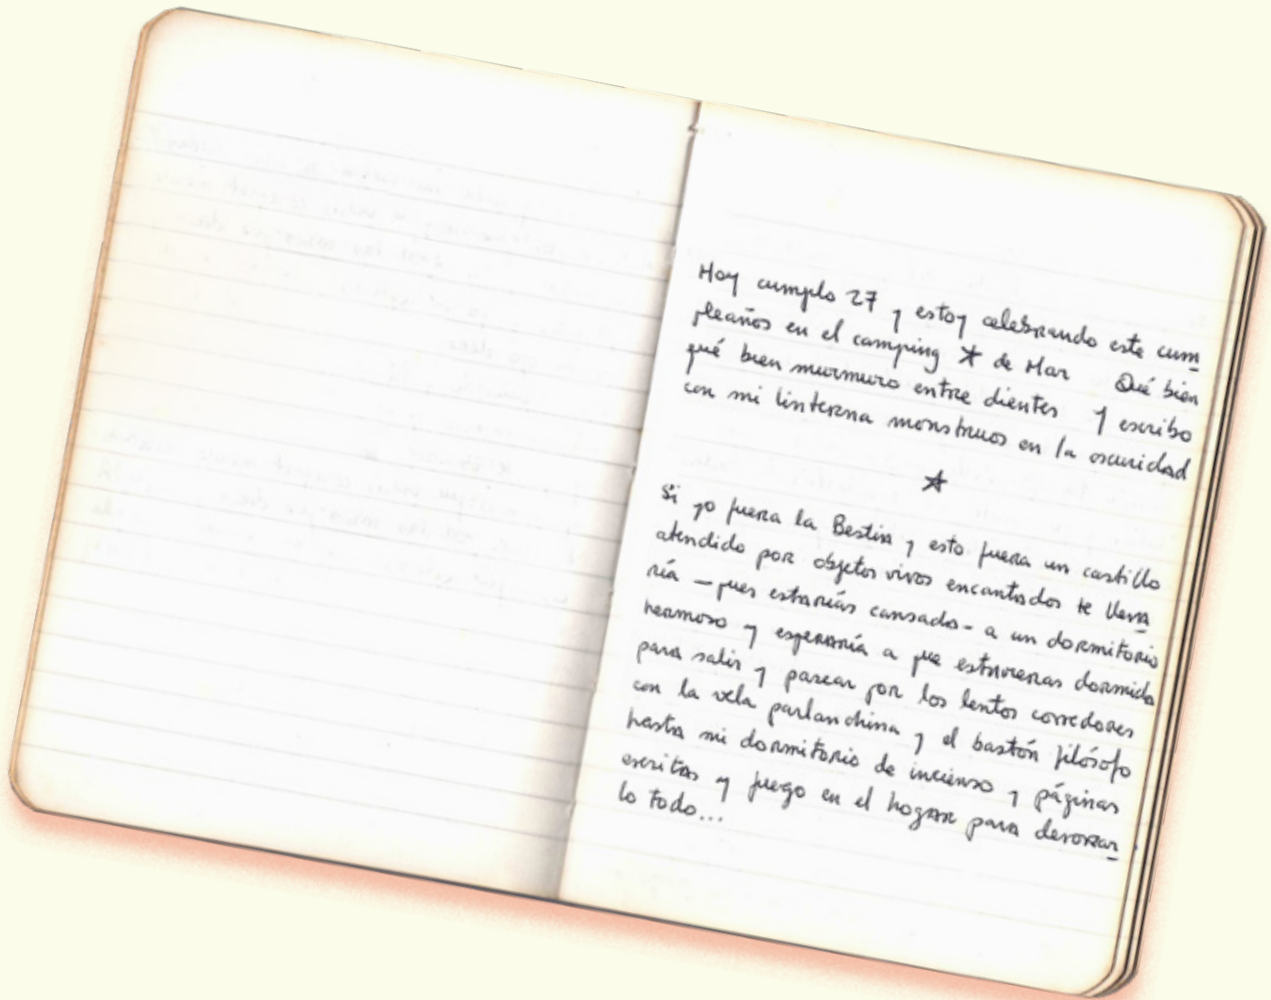 Hoy cumplo 27 y estoy celebrando este cum
pleaños en el camping ★ de Mar Qué bien
qué bien murmuro entre dientes Y escribo
con mi linterna monstruos en la oscuridad
★
Si yo fuera la Bestia y esto fuera un castillo
atendido por objetos vivos encantados te lleva
ría – pues estarías cansado – a un dormitorio
hermoso y esperaría a que estuvieras dormido
para salir y pasear por los lentos corredores
con la vela parlanchina y el bastón filósofo
hasta mi dormitorio de incienso y páginas
escritas y fuego en el hogar para devorar
lo todo...